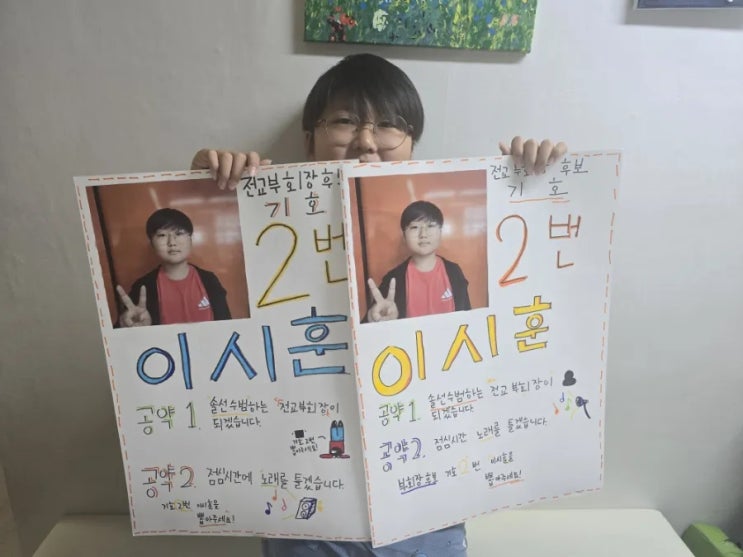 전교부회장후보
기호
2번
이시훈
공약 1. 솔선수범하는 전교부회장이
되겠습니다.
기호2번
뽑아주세요!
공약 2. 점심시간에 노래를 듣겠습니다.
기호2번 이시훈을
뽑아주세요!
전교부회장후보
기호
2번
이시훈
공약 1. 솔선수범하는 전교부회장이
되겠습니다.
공약 2. 점심시간 노래를 듣겠습니다.
부회장후보 기호 2번 이시훈을
뽑아주세요!